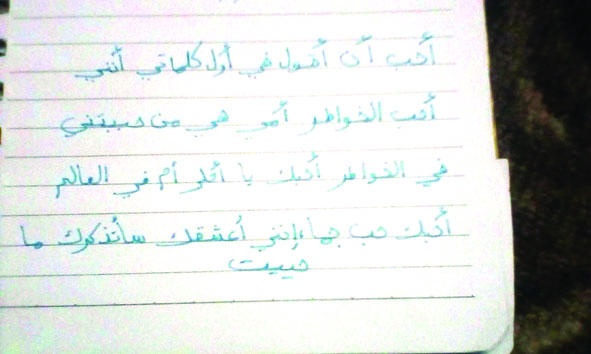 أحب أن أقول في أول كلماتي أنني
أحب الخواطر أمي هي من حببتني
في الخواطر أحبك يا أحلى أم في العالم
أحبك حب جما، إنني أعشقك سأتذكرك ما
حييت